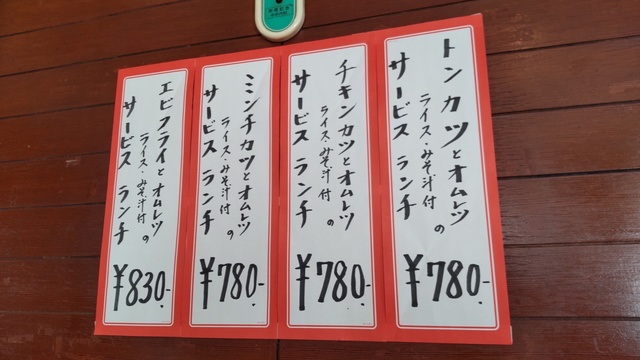 トンカツとオムレツの
ライス・みそ汁付
サービス ランチ
¥780-
チキンカツとオムレツの
ライス・みそ汁付
サービス ランチ
¥780-
ミンチカツとオムレツの
ライス・みそ汁付
サービス ランチ
¥780-
エビフライとオムレツの
ライス・みそ汁付
サービス ランチ
¥830-